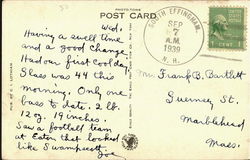 PHOTO-TONE
POST CARD
Wed.
Having a swell time
and a good change.
Had our first cool day
Glass was 44 this
morning. Only one
bass to date. 2 lb.
12 oz. 19 inches.
Saw a football team
at Eaton that looked
like Swampscott
Joe
SOUTH EFFINGHAM,
SEP
7
A.M.
1939
N.H.
1 CENT 1
Mr. Frank B. Bartlett
Surrey St.
Marblehead
Mass.